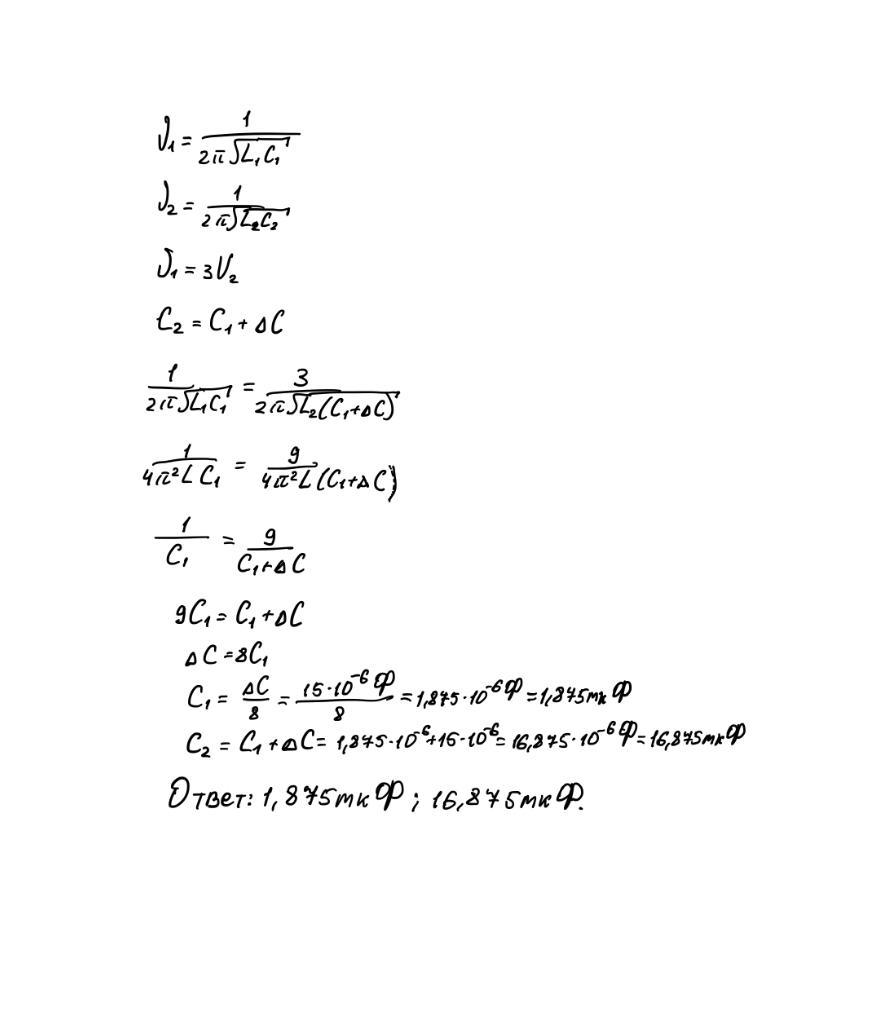 ν₁ = 1/(2π√(L₁C₁))
ν₂ = 1/(2π√(L₂C₂))
ν₁ = 3ν₂
C₂ = C₁ + ΔC
1/(2π√(L₁C₁)) = 3/(2π√(L₂(C₁+ΔC)))
1/(4π²LC₁) = 9/(4π²L(C₁+ΔC))
1/C₁ = 9/(C₁+ΔC)
9C₁ = C₁ + ΔC
ΔC = 8C₁
C₁ = ΔC/8 = 15·10⁻⁶Ф/8 = 1,875·10⁻⁶Ф = 1,875mкФ
C₂ = C₁ + ΔC = 1,875·10⁻⁶+15·10⁻⁶ = 16,875·10⁻⁶Ф = 16,875mкФ
Ответ: 1,875mкФ; 16,875mкФ.